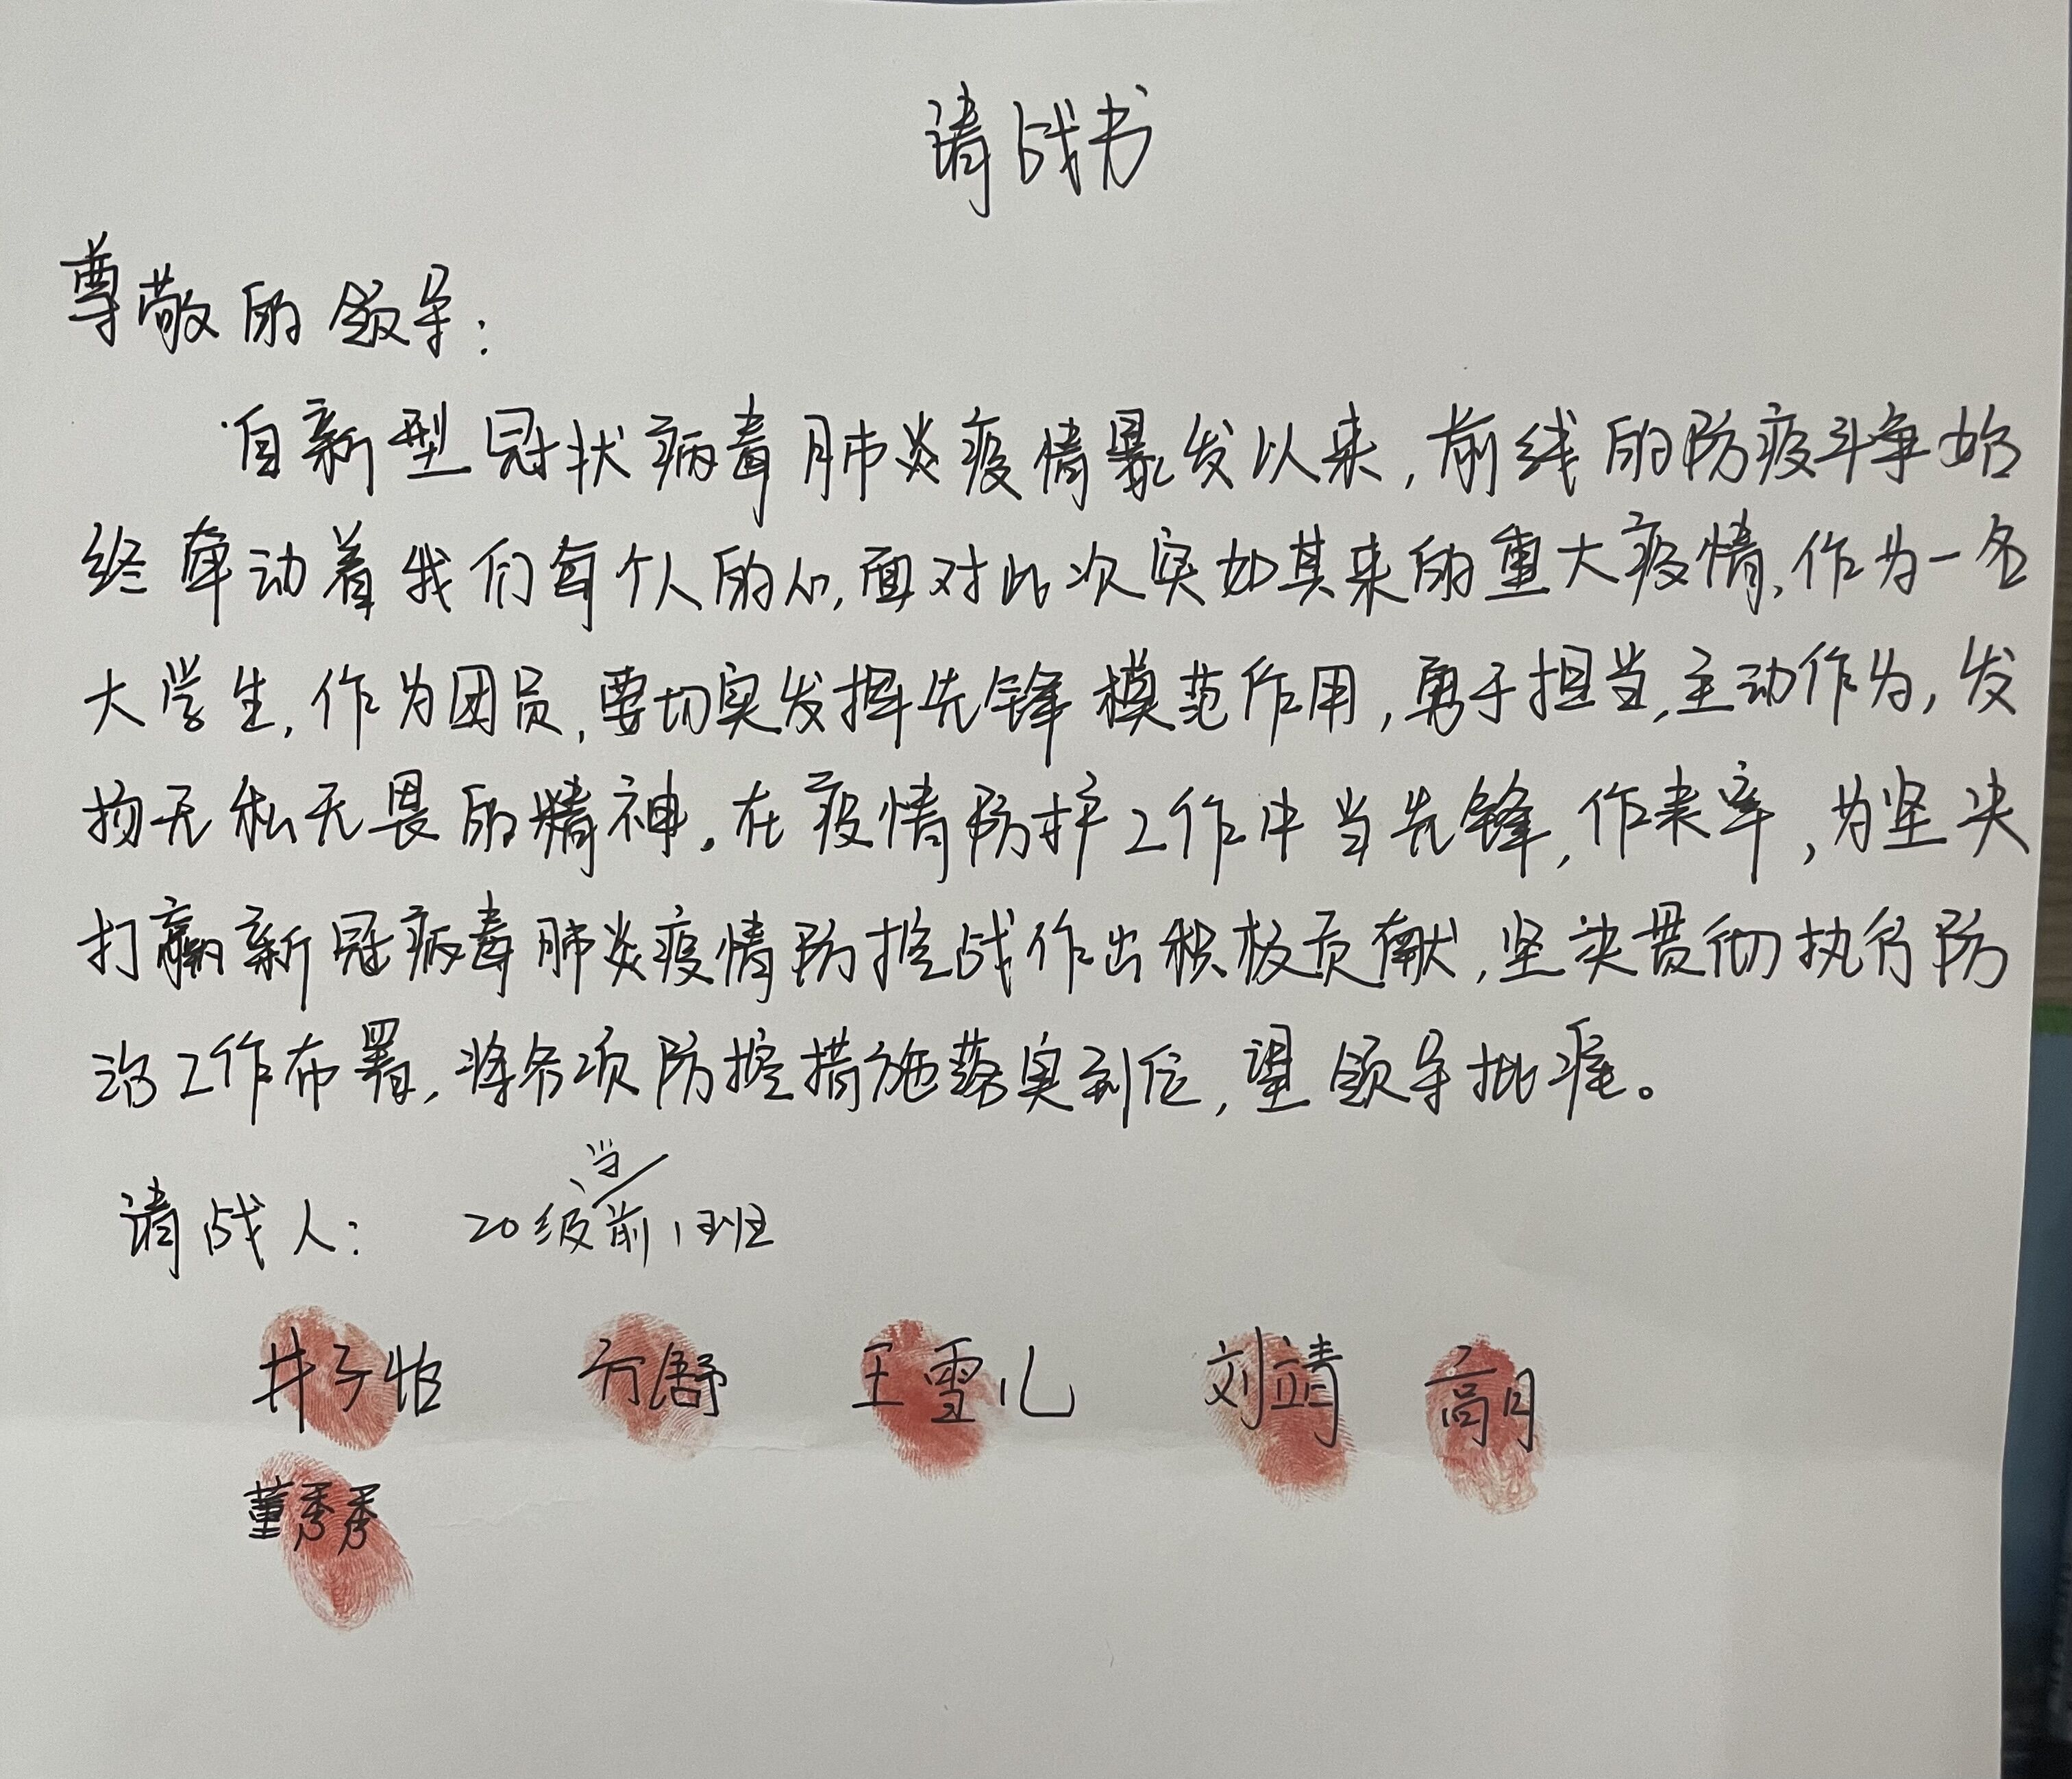 请战书
尊敬的领导:
自新型冠状病毒肺炎疫情暴发以来,前线的防疫斗争始
终牵动着我们每个人的心,面对此次突如其来的重大疫情,作为一名
大学生,作为团员,要切实发挥先锋模范作用,勇于担当,主动作为,发
扬无私无畏的精神。在疫情防护工作中当先锋,作表率,为坚决
打赢新冠病毒肺炎疫情防控战作出积极贡献,坚决贯彻执行防
治工作布署,将各项防控措施落实到位,望领导批准。
当
请战人: 20级前1班
井子怡 方舒 王雪儿 刘靖 高月
董秀秀